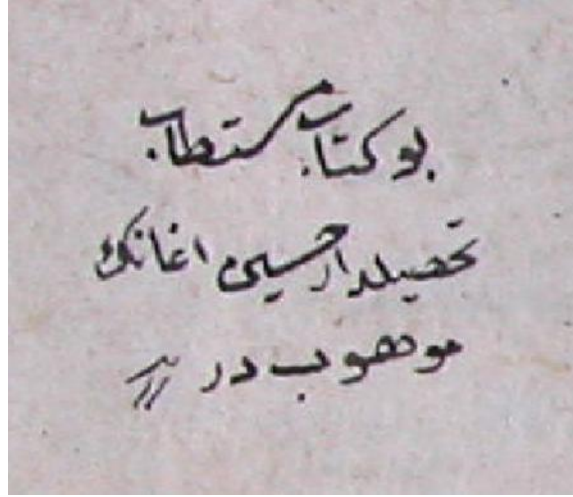 بو كتاب مستطاب
تحصيلدار حسين اغانك
موهوب در